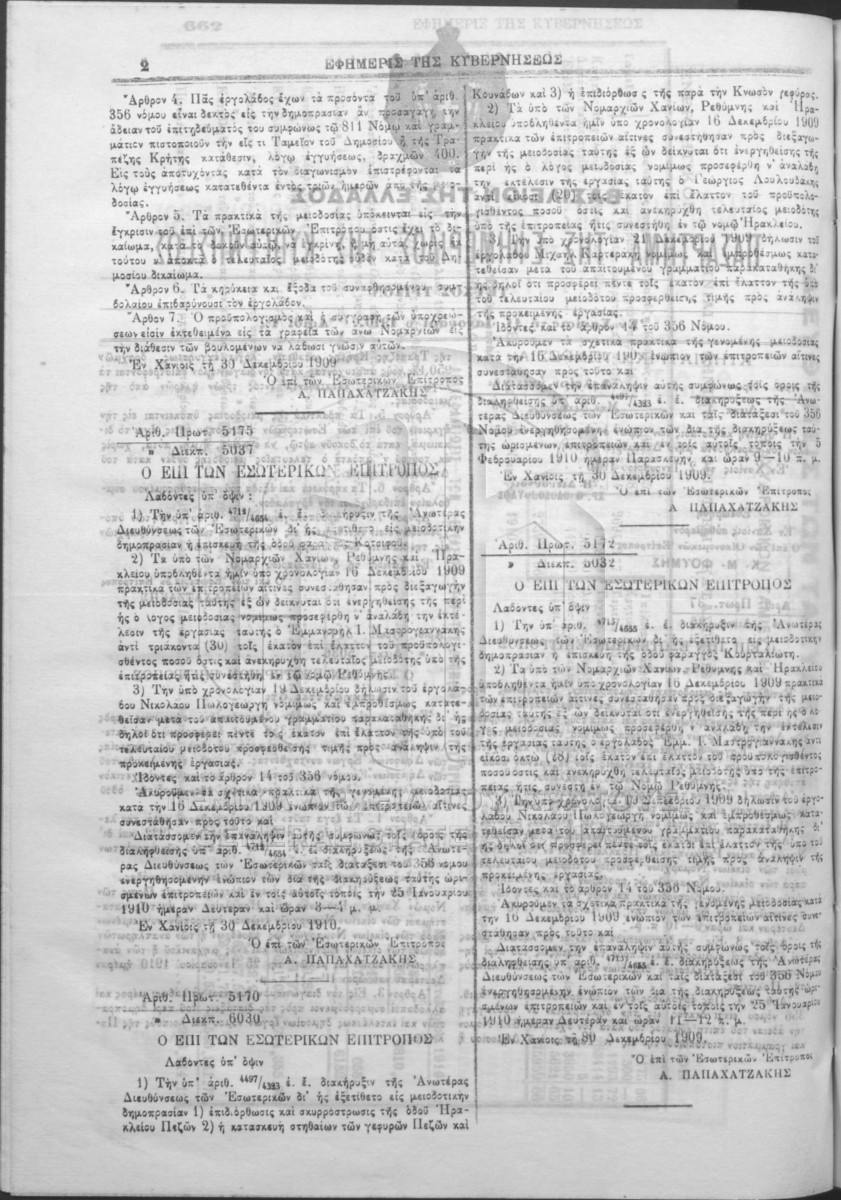 2
ΕΦΗΜΕΡΙΣ ΤΗΣ ΚΥΒΕΡΝΗΣΕΩΣ
Ἄρθρον 4. Πᾶς ἐργολάβος ἔχων τὰ προσόντα τοῦ ὑπ' ἀριθ.
356 νόμου εἶναι δεκτὸς εἰς τὴν δημοπρασίαν ἂν προσαγάγῃ τὴν
ἄδειαν τοῦ ἐπιτηδεύματός του συμφώνως τῷ 811 Νόμῳ καὶ γραμ-
μάτιον πιστοποιοῦν τὴν εἴς τι Ταμεῖον τοῦ Δημοσίου ἢ τῆς Τρα-
πέζης Κρήτης κατάθεσιν, λόγῳ ἐγγυήσεως, δραχμῶν 400.
Εἰς τοὺς ἀποτυχόντας κατὰ τὸν διαγωνισμὸν ἐπιστρέφονται τὰ
λόγῳ ἐγγυήσεως κατατεθέντα ἐντὸς τριῶν ἡμερῶν ἀπὸ τῆς μειο-
δοσίας.
Ἄρθρον 5. Τὰ πρακτικὰ τῆς μειοδοσίας ὑπόκεινται εἰς τὴν
ἔγκρισιν τοῦ ἐπὶ τῶν Ἐσωτερικῶν Ἐπιτρόπου ὅστις ἔχει τὸ δι-
καίωμα, κατὰ τὸ δοκοῦν αὐτῷ, νὰ ἐγκρίνῃ ἢ μὴ αὐτὰ χωρὶς ἐκ
τούτου ν' ἀποκτᾷ ὁ τελευταῖος μειοδότης οὐδὲν κατὰ τοῦ Δη-
μοσίου δικαίωμα.
Ἄρθρον 6. Τὰ κηρύκεια καὶ ἔξοδα τοῦ συναφθησομένου συμ-
βολαίου ἐπιβαρύνουσι τὸν ἐργολάβον.
Ἄρθον 7. Ὁ προϋπολογισμὸς καὶ ἡ συγγραφὴ τῶν ὑποχρεώ-
σεων εἰσὶν ἐκτεθειμένα εἰς τὰ γραφεῖα τῶν ἄνω Νομαρχιῶν εἰς
τὴν διάθεσιν τῶν βουλομένων νὰ λάβωσι γνῶσιν αὐτῶν.
Ἐν Χανίοις τῇ 30 Δεκεμβρίου 1909
Ὁ ἐπὶ τῶν Ἐσωτερικῶν Ἐπίτροπος
Α. ΠΑΠΑΧΑΤΖΑΚΗΣ
Ἀριθ. Πρωτ. 5175
» Διεκπ. 5037
Ο ΕΠΙ ΤΩΝ ΕΣΩΤΕΡΙΚΩΝ ΕΠΙΤΡΟΠΟΣ
Λαβόντες ὑπ' ὄψιν :
1) Τὴν ὑπ' ἀριθ. 4718/4654 ἐ. ἔ. διακήρυξιν τῆς Ἀνωτέρας
Διευθύνσεως τῶν Ἐσωτερικῶν δι' ἧς ἐξετίθετο εἰς μειοδοτικὴν
δημοπρασίαν ἡ ἐπισκευὴ τῆς ὁδοῦ Κοτσιφοῦ.
2) Τὰ ὑπὸ τῶν Νομαρχιῶν Χανίων, Ρεθύμνης καὶ Ἡρα-
κλείου ὑποβληθέντα ἡμῖν ὑπὸ χρονολογίαν 16 Δεκεμβρίου 1909
πρακτικὰ τῶν ἐπιτροπειῶν αἵτινες συνεστήθησαν πρὸς διεξαγωγὴν
τῆς μειοδοσίας ταύτης ἐξ ὧν δείκνυται ὅτι ἐνεργηθείσης τῆς περὶ
ἧς ὁ λόγος μειοδοσίας νομίμως προσεφέρθη ν' ἀναλάβῃ τὴν ἐκτέ-
λεσιν τῆς ἐργασίας ταύτης ὁ Ἐμμανουὴλ Ι. Μαστρογιαννάκης
ἀντὶ τριάκοντα (30) τοῖς ἑκατὸν ἐπὶ ἔλαττον τοῦ προϋπολογι-
σθέντος ποσοῦ ὅστις καὶ ἀνεκηρύχθη τελευταῖος μειοδότης ὑπὸ τῆς
ἐπιτροπείας ἥτις συνεστήθη ἐν τῷ νομῷ Ρεθύμνης.
3) Τὴν ὑπὸ χρονολογίαν 19 Δεκεμβρίου δήλωσιν τοῦ ἐργολά-
βου Νικολάου Πωλογεώργη νομίμως καὶ ἐμπροθέσμως κατατε-
θεῖσαν μετὰ τοῦ ἀπαιτουμένου γραμματίου παρακαταθήκης δι' ἧς
δηλοῖ ὅτι προσφέρει πέντε τοῖς ἑκατὸν ἐπὶ ἔλαττον τῆς ὑπὸ τοῦ
τελευταίου μειοδότου προσφερθείσης τιμῆς πρὸς ἀνάληψιν τῆς
προκειμένης ἐργασίας.
Ἰδόντες καὶ τὸ ἄρθρον 14 τοῦ 356 νόμου.
Ἀκυροῦμεν τὰ σχετικὰ πρακτικὰ τῆς γενομένης μειοδοσίας
κατὰ τὴν 16 Δεκεμβρίου 1909 ἐνώπιον τῶν ἐπιτροπειῶν αἵτινες
συνεστάθησαν πρὸς τοῦτο καὶ
Διατάσσομεν τὴν ἐπανάληψιν αὐτῆς συμφώνως τοῖς ὅροις τῆς
διαληφθείσης ὑπ' ἀριθ. 4718/4654 ἐ. ἔ. διακηρύξεως τῆς Ἀνωτέ-
ρας Διευθύνσεως τῶν Ἐσωτερικῶν ταῖς διατάξεσι τοῦ 356 νόμου
ἐνεργηθησομένην ἐνώπιον τῶν διὰ τῆς διακηρύξεως ταύτης ὡρι-
σμένων ἐπιτροπειῶν καὶ ἐν τοῖς αὐτοῖς τόποις τὴν 25 Ἰανουαρίου
1910 ἡμέραν Δευτέραν καὶ ὥραν 3—4 μ. μ.
Ἐν Χανίοις τῇ 30 Δεκεμβρίου 1910.
Ὁ ἐπὶ τῶν Ἐσωτερικῶν Ἐπίτροπος
Α. ΠΑΠΑΧΑΤΖΑΚΗΣ
Ἀριθ. Πρωτ. 5170
» Διεκπ. 6030
Ο ΕΠΙ ΤΩΝ ΕΣΩΤΕΡΙΚΩΝ ΕΠΙΤΡΟΠΟΣ
Λαβόντες ὑπ' ὄψιν
1) Τὴν ὑπ' ἀριθ. 4497/4393 ἐ. ἔ. διακήρυξιν τῆς Ἀνωτέρας
Διευθύνσεως τῶν Ἐσωτερικῶν δι' ἧς ἐξετίθετο εἰς μειοδοτικὴν
δημοπρασίαν 1) ἐπιδιόρθωσις καὶ σκυρρόστρωσις τῆς ὁδοῦ Ἡρα-
κλείου Πεζῶν 2) ἡ κατασκευὴ στηθαίων τῶν γεφυρῶν Πεζῶν καὶ
Κουνάβων καὶ 3) ἡ ἐπιδιόρθωσις τῆς παρὰ τὴν Κνωσὸν γεφύρας.
2) Τὰ ὑπὸ τῶν Νομαρχιῶν Χανίων, Ρεθύμνης καὶ Ἡρα-
κλείου ὑποβληθέντα ἡμῖν ὑπὸ χρονολογίαν 16 Δεκεμβρίου 1909
πρακτικὰ τῶν ἐπιτροπειῶν αἵτινες συνεστήθησαν πρὸς διεξαγω-
γὴν τῆς μειοδοσίας ταύτης ἐξ ὧν δείκνυται ὅτι ἐνεργηθείσης τῆς
περὶ ἧς ὁ λόγος μειοδοσίας νομίμως προσεφέρθη ν' ἀναλάβῃ
τὴν ἐκτέλεσιν τῆς ἐργασίας ταύτης ὁ Γεώργιος Λουλουδάκης
ἀντὶ εἴκοσι (20) τοῖς ἑκατὸν ἐπὶ ἔλαττον τοῦ προϋπολο-
γισθέντος ποσοῦ ὅστις καὶ ἀνεκηρύχθη τελευταῖος μειοδότης
ὑπὸ τῆς ἐπιτροπείας ἥτις συνεστήθη ἐν τῷ νομῷ Ἡρακλείου.
3) Τὴν ὑπὸ χρονολογίαν 21 Δεκεμβρίου 1909 δήλωσιν τοῦ
ἐργολάβου Μιχαὴλ Καρτεράκη νομίμως καὶ ἐμπροθέσμως κατα-
τεθεῖσαν μετὰ τοῦ ἀπαιτουμένου γραμματίου παρακαταθήκης δι'
ἧς δηλοῖ ὅτι προσφέρει πέντε τοῖς ἑκατὸν ἐπὶ ἔλαττον τῆς ὑπὸ
τοῦ τελευταίου μειοδότου προσφερθείσης τιμῆς πρὸς ἀνάληψιν
τῆς προκειμένης ἐργασίας.
Ἰδόντες καὶ τὸ ἄρθρον 14 τοῦ 356 Νόμου.
Ἀκυροῦμεν τὰ σχετικὰ πρακτικὰ τῆς γενομένης μειοδοσίας
κατὰ τὴν 16 Δεκεμβρίου 1909 ἐνώπιον τῶν ἐπιτροπειῶν αἵτινες
συνεστάθησαν πρὸς τοῦτο καὶ
Διατάσσομεν τὴν ἐπανάληψιν αὐτῆς συμφώνως τοῖς ὅροις τῆς
διαληφθείσης ὑπ' ἀριθ. 4497/4393 ἐ. ἔ. διακηρύξεως τῆς Ἀνω-
τέρας Διευθύνσεως τῶν Ἐσωτερικῶν καὶ ταῖς διατάξεσι τοῦ 356
Νόμου ἐνεργηθησομένην ἐνώπιον τῶν διὰ τῆς διακηρύξεως ταύ-
της ὡρισμένων ἐπιτροπειῶν καὶ ἐν τοῖς αὐτοῖς τόποις τὴν 5
Φεβρουαρίου 1910 ἡμέραν Παρασκευὴν καὶ ὥραν 9—10 π. μ.
Ἐν Χανίοις τῇ 30 Δεκεμβρίου 1909.
Ὁ ἐπὶ τῶν Ἐσωτερικῶν Ἐπίτροπος
Α ΠΑΠΑΧΑΤΖΑΚΗΣ
Ἀριθ. Πρωτ. 5172
» Διεκπ. 5032
Ο ΕΠΙ ΤΩΝ ΕΣΩΤΕΡΙΚΩΝ ΕΠΙΤΡΟΠΟΣ
Λαβόντες ὑπ' ὄψιν
1) Τὴν ὑπ' ἀριθ. 4713/4655 ἐ. ἔ. διακήρυξιν τῆς Ἀνωτέρας
Διευθύνσεως τῶν Ἐσωτερικῶν δι' ἧς ἐξετίθετο εἰς μειοδοτικὴν
δημοπρασίαν ἡ ἐπισκευὴ τῆς ὁδοῦ φάραγγος Κουρταλιώτη.
2) Τὰ ὑπὸ τῶν Νομαρχιῶν Χανίων Ρεθύμνης καὶ Ἡρακλείου
ὑποβληθέντα ἡμῖν ὑπὸ χρονολογίαν 16 Δεκεμβρίου 1909 πρακτικὰ
τῶν ἐπιτροπειῶν αἵτινες συνεστάθησαν πρὸς διεξαγωγὴν τῆς μειο-
δοσίας ταύτης ἐξ ὧν δείκνυται ὅτι ἐνεργηθείσης τῆς περὶ ἧς ὁ λό-
γος μειοδοσίας νομίμως προσεφέρθη ν' ἀναλάβῃ τὴν ἐκτέλεσιν
τῆς ἐργασίας ταύτης ὁ ἐργολάβος Ἐμμ. Ι. Μαστρογιαννάκης ἀντὶ
εἴκοσι ὀκτὼ (28) τοῖς ἑκατὸν ἐπὶ ἔλαττον τοῦ προϋπολογισθέντος
ποσοῦ ὅστις καὶ ἀνεκηρύχθη τελευταῖος μειοδότης ὑπὸ τῆς ἐπιτρο-
πείας ἥτις συνέστη ἐν τῷ Νομῷ Ρεθύμνης.
3) Τὴν ὑπὸ χρονολογίαν 19 Δεκεμβρίου 1909 δήλωσιν τοῦ ἐργο-
λάβου Νικολάου Πωλογεώργη νομίμως καὶ ἐμπροθέσμως κατα-
τεθεῖσαν μετὰ τοῦ ἀπαιτουμένου γραμματίου παρακαταθήκης δι'
ἧς δηλοῖ ὅτι προσφέρει πέντε τοῖς ἑκατὸν ἐπὶ ἔλαττον τῆς ὑπὸ τοῦ
τελευταίου μειοδότου προσφερθείσης τιμῆς πρὸς ἀνάληψιν τῆς
προκειμένης ἐργασίας.
Ἰδόντες καὶ τὸ ἄρθρον 14 τοῦ 356 Νόμου.
Ἀκυροῦμεν τὰ σχετικὰ πρακτικὰ τῆς γενομένης μειοδοσίας κατὰ
τὴν 16 Δεκεμβρίου 1909 ἐνώπιον τῶν ἐπιτροπειῶν αἵτινες συνε-
στάθησαν πρὸς τοῦτο καὶ
Διατάσσομεν τὴν ἐπανάληψιν αὐτῆς συμφώνως τοῖς ὅροις τῆς
διαληφθείσης ὑπ' ἀριθ. 4713/4655 ἐ. ἔ. διακηρύξεως τῆς Ἀνωτέρας
Διευθύνσεως τῶν Ἐσωτερικῶν καὶ ταῖς διατάξεσι τοῦ 356 Νόμου
ἐνεργηθησομένην ἐνώπιον τῶν διὰ τῆς διακηρύξεως ταύτης ὡρι-
σμένων ἐπιτροπειῶν καὶ ἐν τοῖς αὐτοῖς τόποις τὴν 25 Ἰανουαρίου
1910 ἡμέραν Δευτέραν καὶ ὥραν 11—12 π. μ.
Ἐν Χανίοις τῇ 30 Δεκεμβρίου 1909.
Ὁ ἐπὶ τῶν Ἐσωτερικῶν Ἐπίτροπος
Α. ΠΑΠΑΧΑΤΖΑΚΗΣ